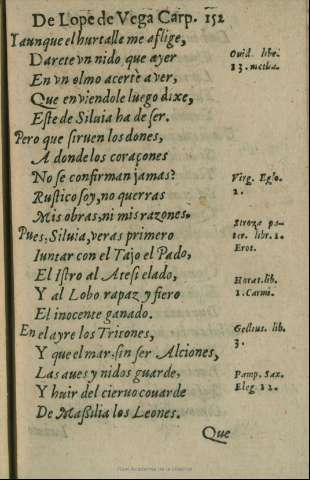 De Lope de Vega Carp. 152
Y aunque el hurtalle me aflige,
Darete vn nido que ayer
En vn olmo acertè a ver,
Que en viendole luego dixe,
Este de Siluia ha de ser.
Pero que siruen los dones,
A donde los coraçones
No se confirman jamas?
Rustico soy, no querras
Mis obras, ni mis razones.
Pues, Siluia, veras primero
Iuntar con el Tajo el Pado,
El Istro al Atesi elado,
Y al Lobo rapaz y fiero
El inocente ganado.
En el ayre los Tritones,
Y que el mar, sin ser Alciones,
Las aues y nidos guarde,
Y huir del cieruo couarde
De Massilia los Leones.
Que
Ouid. libr.
13. metha.
Virg. Eglo.
2.
Stroza pa-
ter. libr. 1.
Erot.
Horat. lib.
1. Carmi.
Gellius. lib.
3.
Pamp. Sax.
Eleg. 12.
Real Academia de la Historia